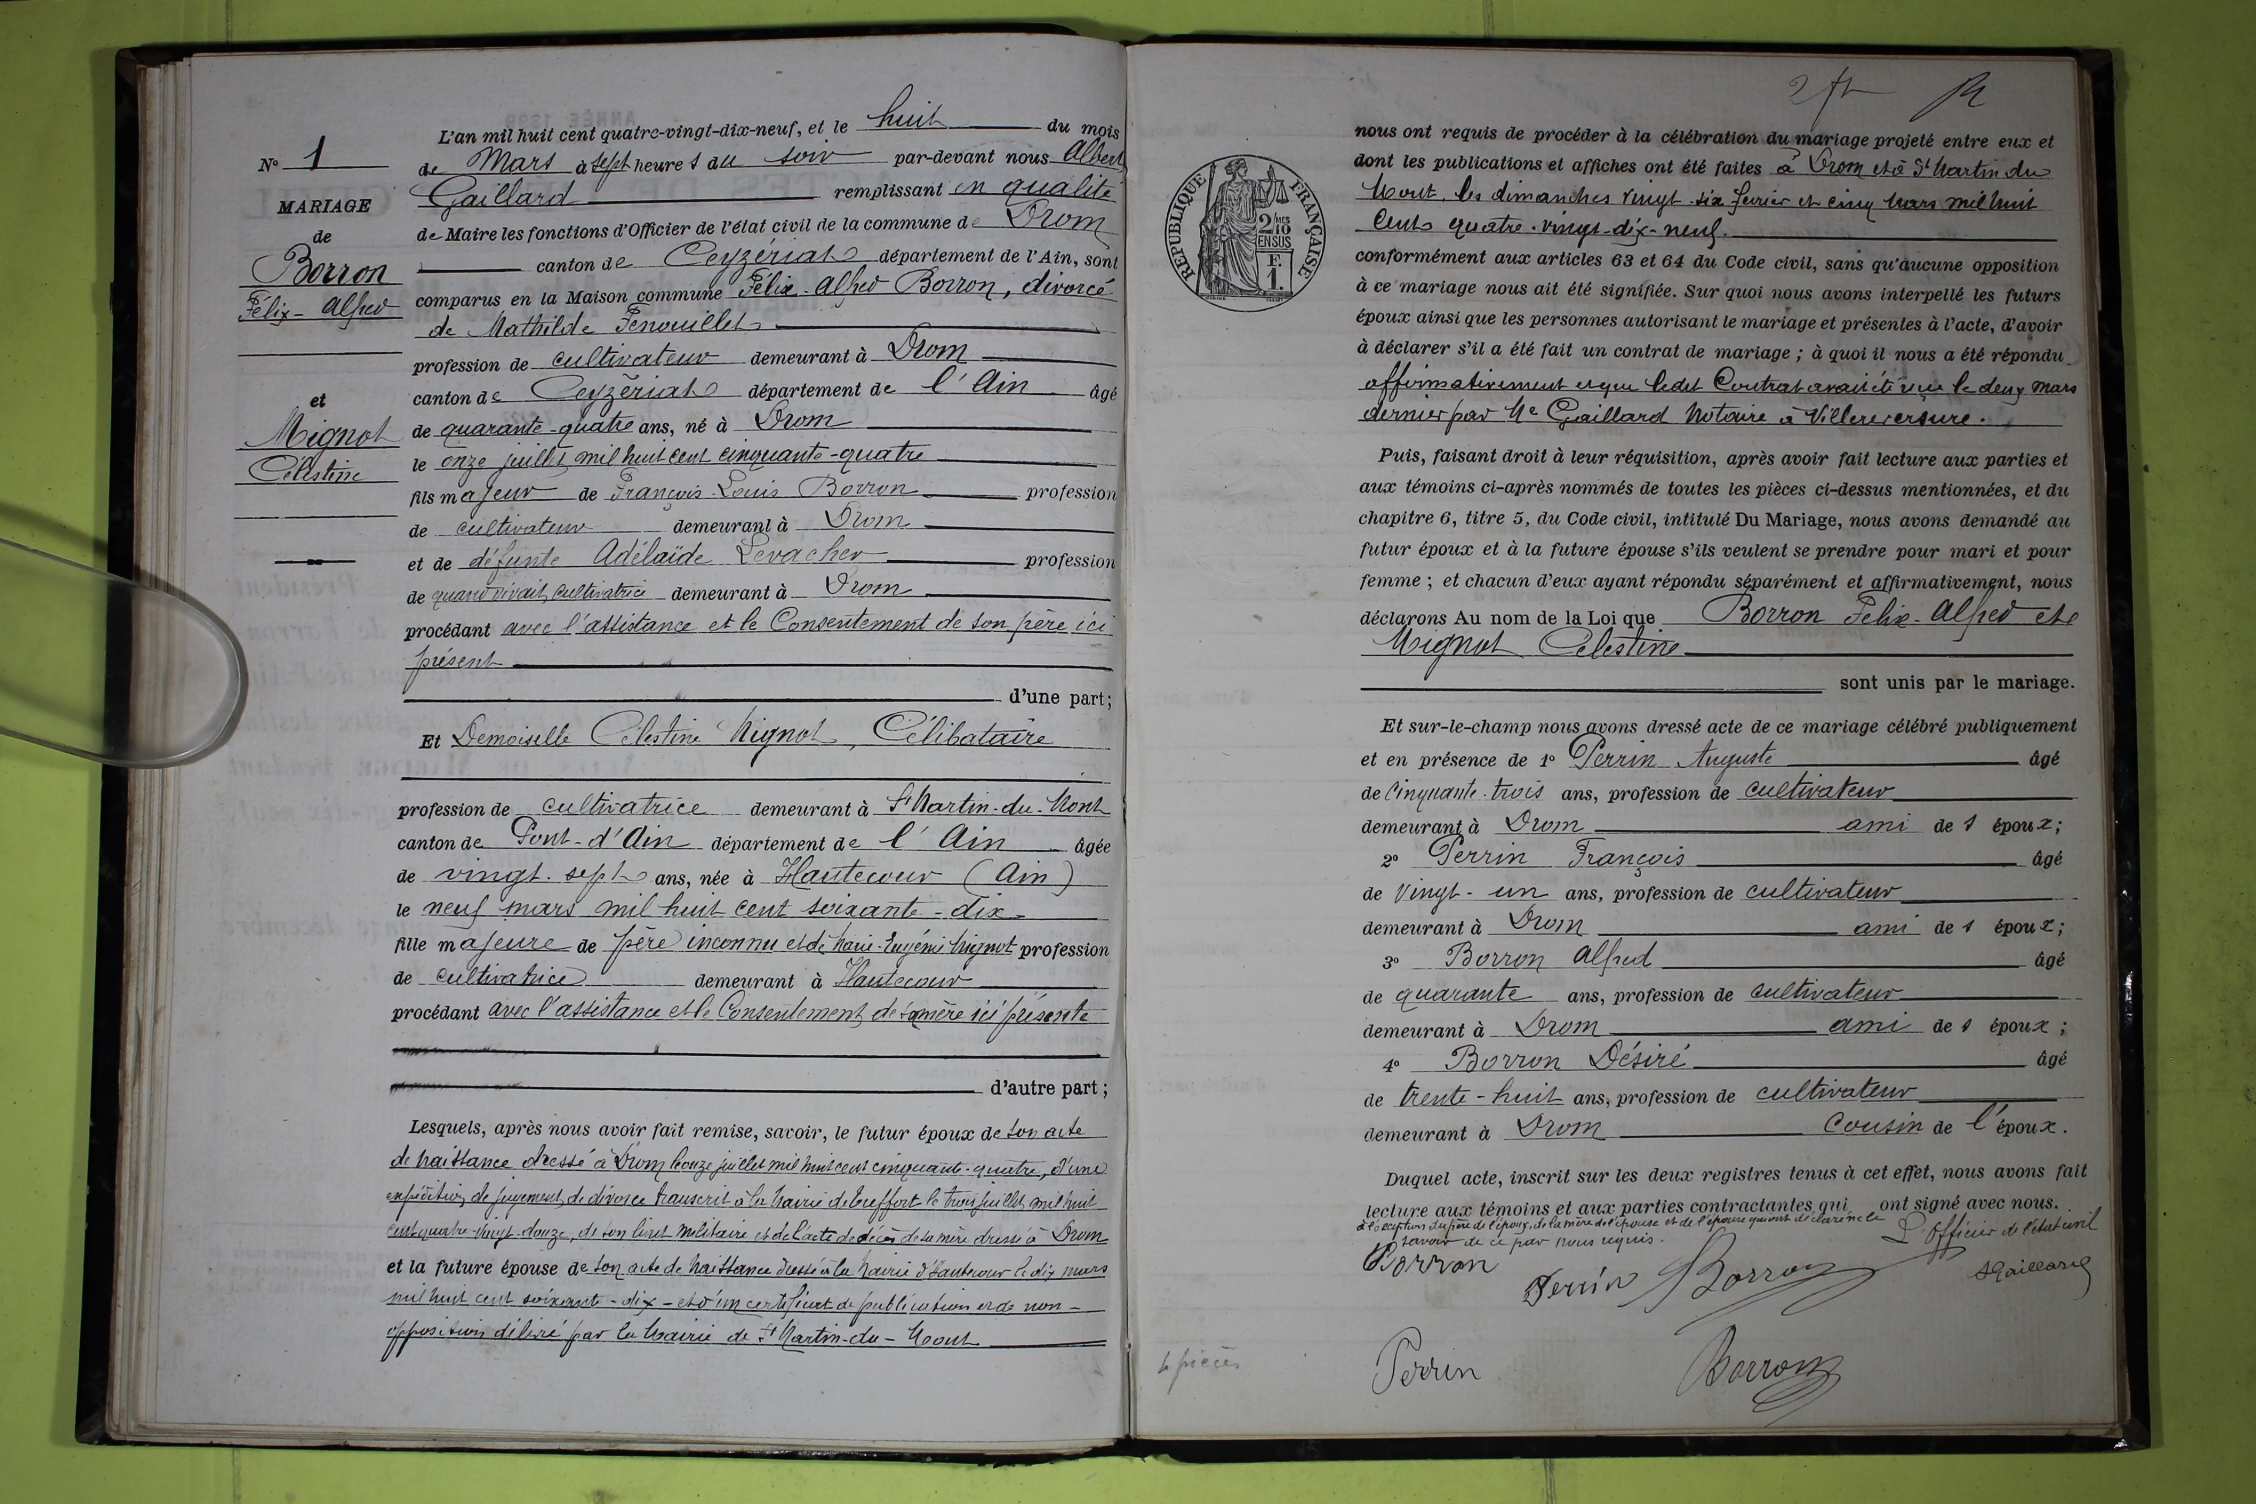 N° 1
MARIAGE
de
Borron
Félix-Alfred
et
Mignot
Célestine
L'an mil huit cent quatre-vingt-dix-neuf, et le huit du mois
de Mars à sept heures du soir par-devant nous Albert
Gaillard remplissant en qualité
de Maire les fonctions d'Officier de l'état civil de la commune de Drom
canton de Ceyzériat département de l'Ain, sont
comparus en la Maison commune Félix-Alfred Borron, divorcé
de Mathilde Fenouillet
profession de cultivateur demeurant à Drom
canton de Ceyzériat département de l'Ain âgé
de quarante-quatre ans, né à Drom
le onze juillet mil huit cent cinquante-quatre
fils majeur de François-Louis Borron profession
de cultivateur demeurant à Drom
et de défunte Adélaïde Levacher profession
de quand vivait, cultivatrice demeurant à Drom
procédant avec l'assistance et le Consentement de son père ici
présent
d'une part;
Et Demoiselle Célestine Mignot, Célibataire
profession de cultivatrice demeurant à St Martin-du-Mont
canton de Pont-d'Ain département de l'Ain âgée
de vingt-sept ans, née à Hautecour (Ain)
le neuf mars mil huit cent soixante-dix-
fille majeure de père inconnu et de Marie-Eugénie Mignot profession
de cultivatrice demeurant à Hautecour
procédant avec l'assistance et le Consentement de sa mère ici présente
d'autre part;
Lesquels, après nous avoir fait remise, savoir, le futur époux de son acte
de naissance dressé à Drom le onze juillet mil huit cent cinquante-quatre, d'une
expédition de jugement de divorce transcrit à la Mairie de Treffort le trois juillet mil huit
cent quatre-vingt-douze, de son livret militaire et de l'acte de décès de sa mère dressé à Drom
et la future épouse de son acte de naissance dressé à la Mairie d'Hautecour le dix mars
mil huit cent soixante-dix-et d'un certificat de publication et de non-
opposition délivré par la Mairie de St Martin-du-Mont
2 ft
REPUBLIQUE FRANÇAISE
2/10 EN SUS
F. 1.
nous ont requis de procéder à la célébration du mariage projeté entre eux et
dont les publications et affiches ont été faites à Drom et à St Martin du
Mont, les dimanches vingt-six février et cinq mars mil huit
cent quatre-vingt-dix-neuf.
conformément aux articles 63 et 64 du Code civil, sans qu'aucune opposition
à ce mariage nous ait été signifiée. Sur quoi nous avons interpellé les futurs
époux ainsi que les personnes autorisant le mariage et présentes à l'acte, d'avoir
à déclarer s'il a été fait un contrat de mariage; à quoi il nous a été répondu
affirmativement et que ledit Contrat avait été reçu le deux mars
dernier par Me Gaillard Notaire à Villereversure.
Puis, faisant droit à leur réquisition, après avoir fait lecture aux parties et
aux témoins ci-après nommés de toutes les pièces ci-dessus mentionnées, et du
chapitre 6, titre 5, du Code civil, intitulé Du Mariage, nous avons demandé au
futur époux et à la future épouse s'ils veulent se prendre pour mari et pour
femme; et chacun d'eux ayant répondu séparément et affirmativement, nous
déclarons Au nom de la Loi que Borron Felix-Alfred et
Mignot Celestine
sont unis par le mariage.
Et sur-le-champ nous avons dressé acte de ce mariage célébré publiquement
et en présence de 1° Perrin Auguste âgé
de Cinquante-trois ans, profession de cultivateur
demeurant à Drom ami des époux;
2° Perrin François âgé
de vingt-un ans, profession de cultivateur
demeurant à Drom ami des époux;
3° Borron Alfred âgé
de quarante ans, profession de cultivateur
demeurant à Drom ami des époux;
4° Borron Désiré âgé
de trente-huit ans, profession de cultivateur
demeurant à Drom Cousin de l'époux.
Duquel acte, inscrit sur les deux registres tenus à cet effet, nous avons fait
lecture aux témoins et aux parties contractantes qui ont signé avec nous.
à l'exception du père de l'époux, de la mère de l'épouse et de l'épouse qui ont déclaré ne le
savoir de ce par nous requis.
L'officier de l'état civil
Borron
Perrin Borron
AGaillard
Perrin
Borron
4 pièces